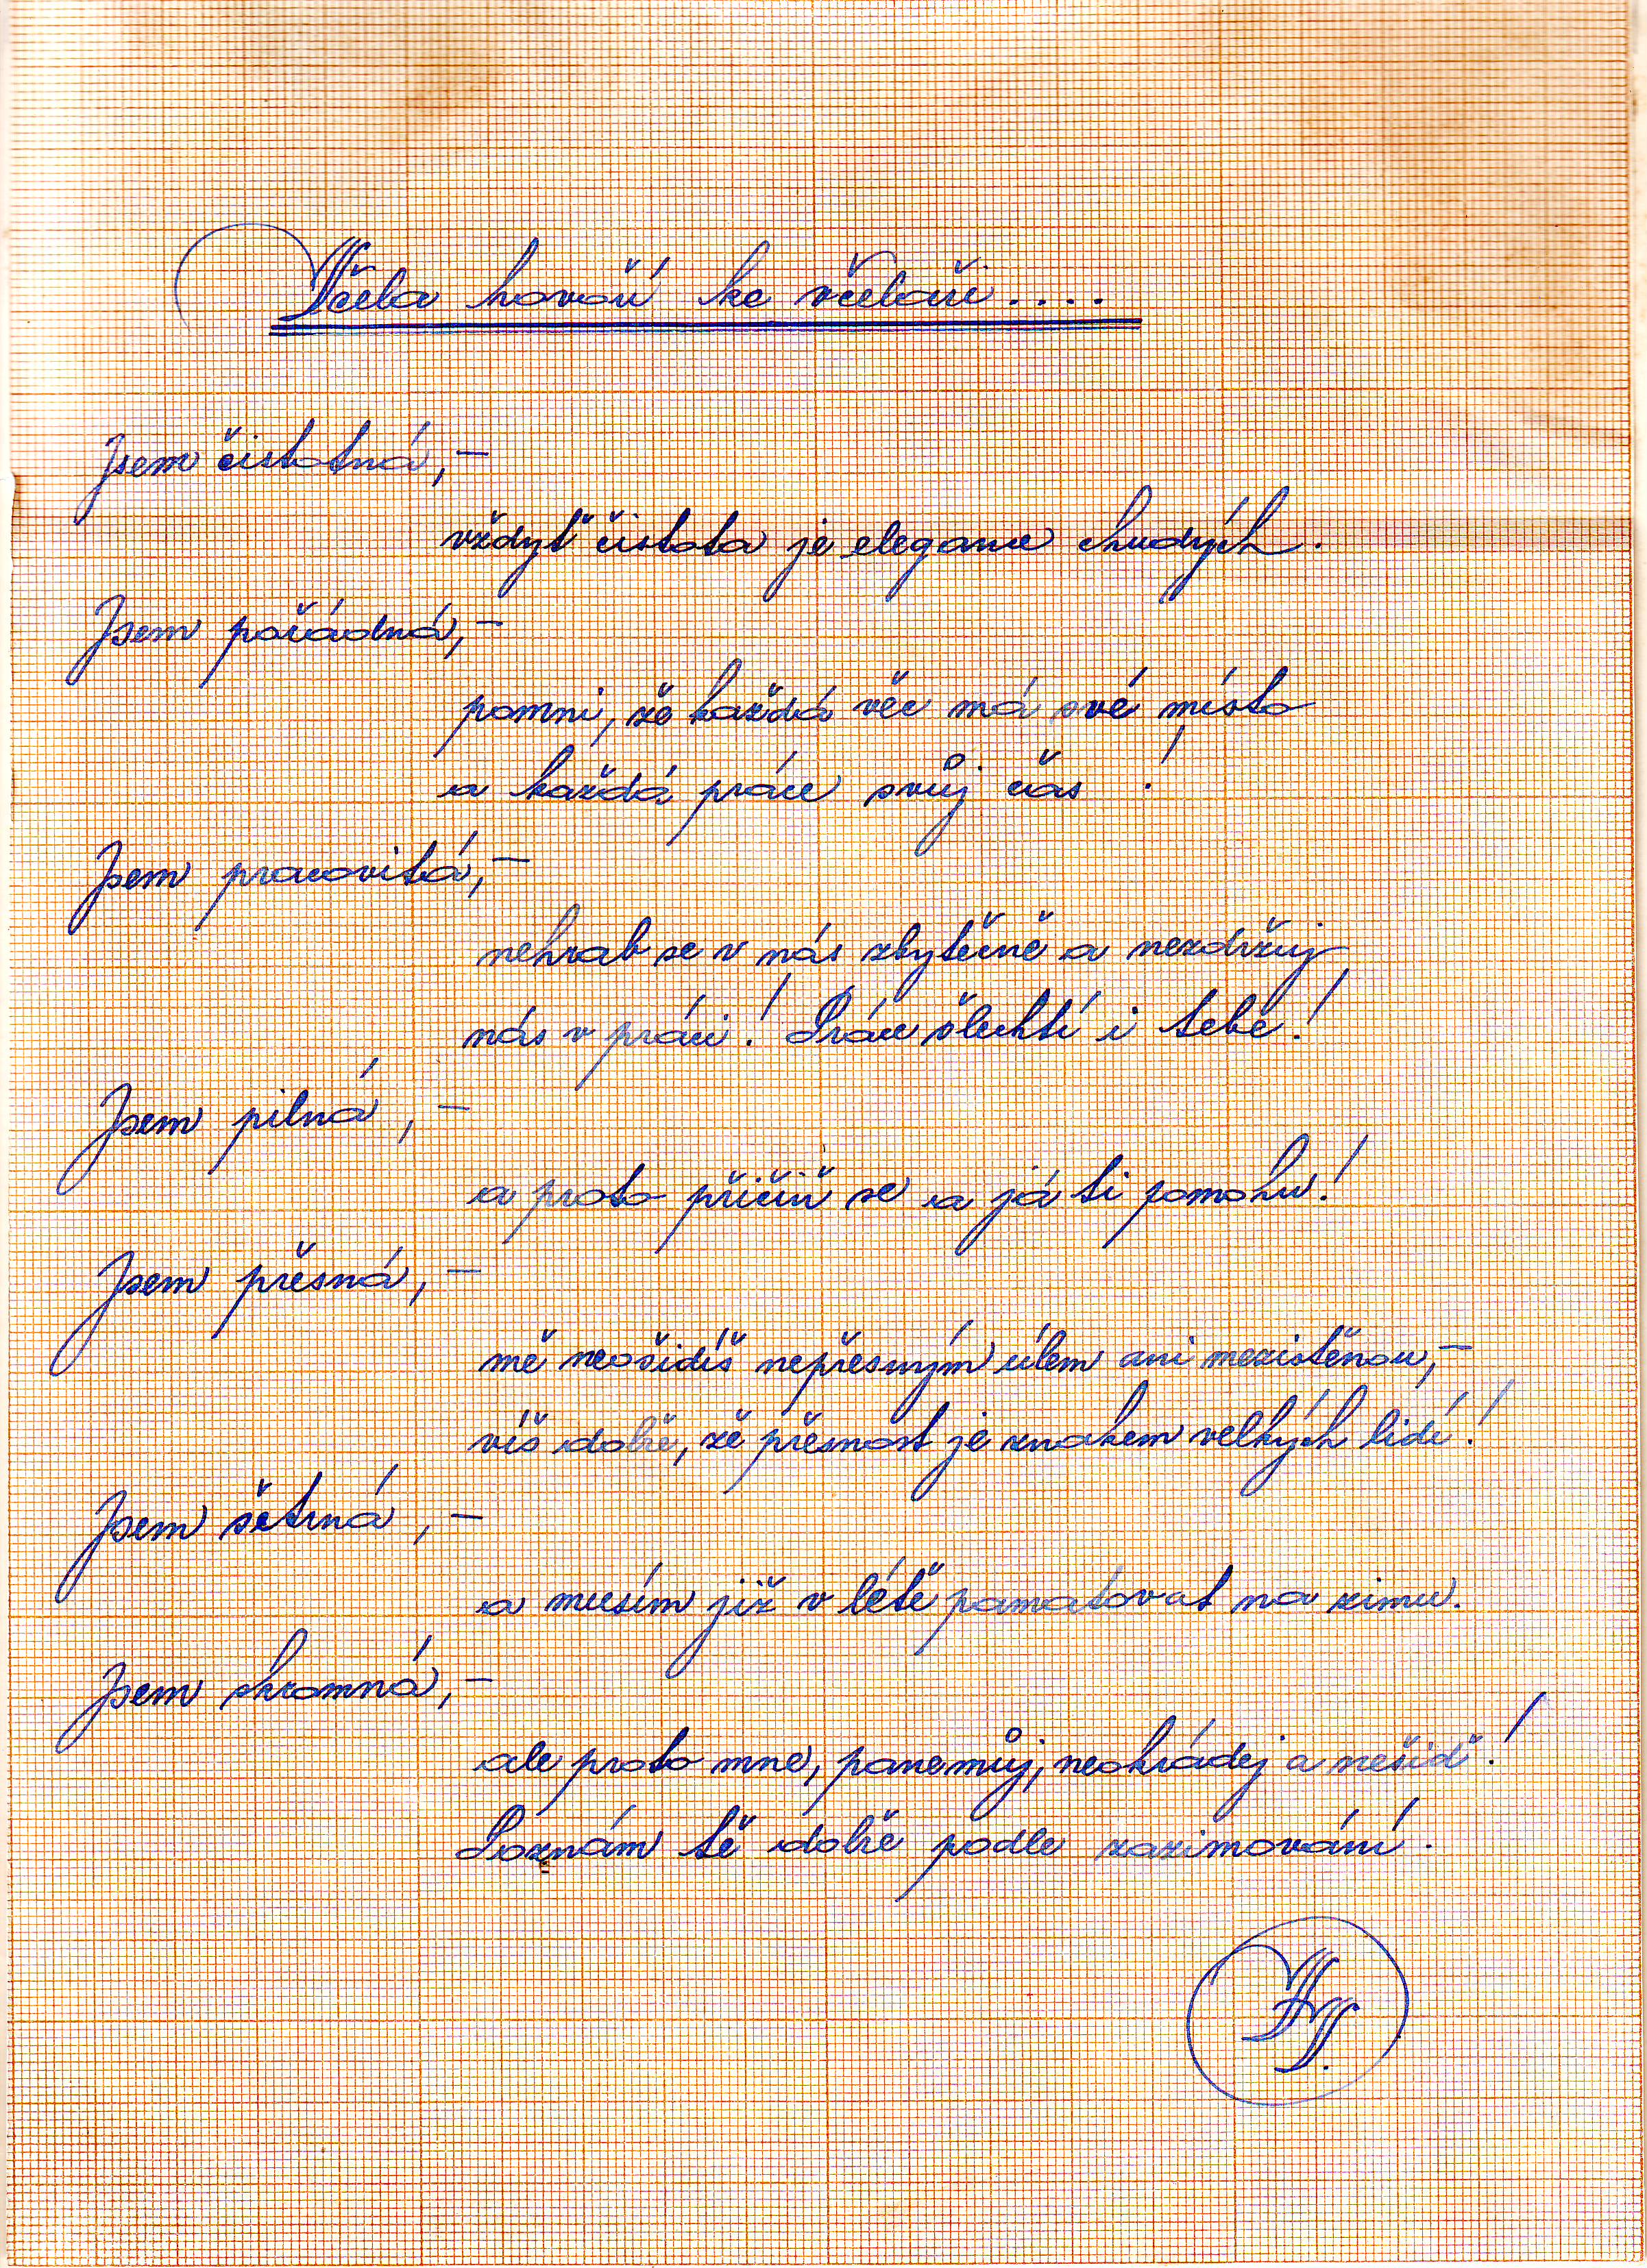 Včela hovoří ke včelaři....
Jsem čistotná,–
vždyť čistota je elegance chudých.
Jsem pořádná,–
pomni, že každá věc má své místo
a každá práce svůj čas !
Jsem pracovitá,–
nehrab se v nás zbytečně a nezdržuj
nás v práci! Práce šlechtí i tebe!
Jsem pilná,–
a proto přičiň se a já ti pomohu!
Jsem přesná,–
mě neošidíš nepřesným úlem ani mezistěnou,–
víš dobře, že přesnost je znakem velkých lidí!
Jsem šetrná,–
a musím již v létě pamatovat na zimu.
Jsem skromná,–
ale proto mne, pane můj, neokrádej a nešiď!
Poznám tě dobře podle zazimování.